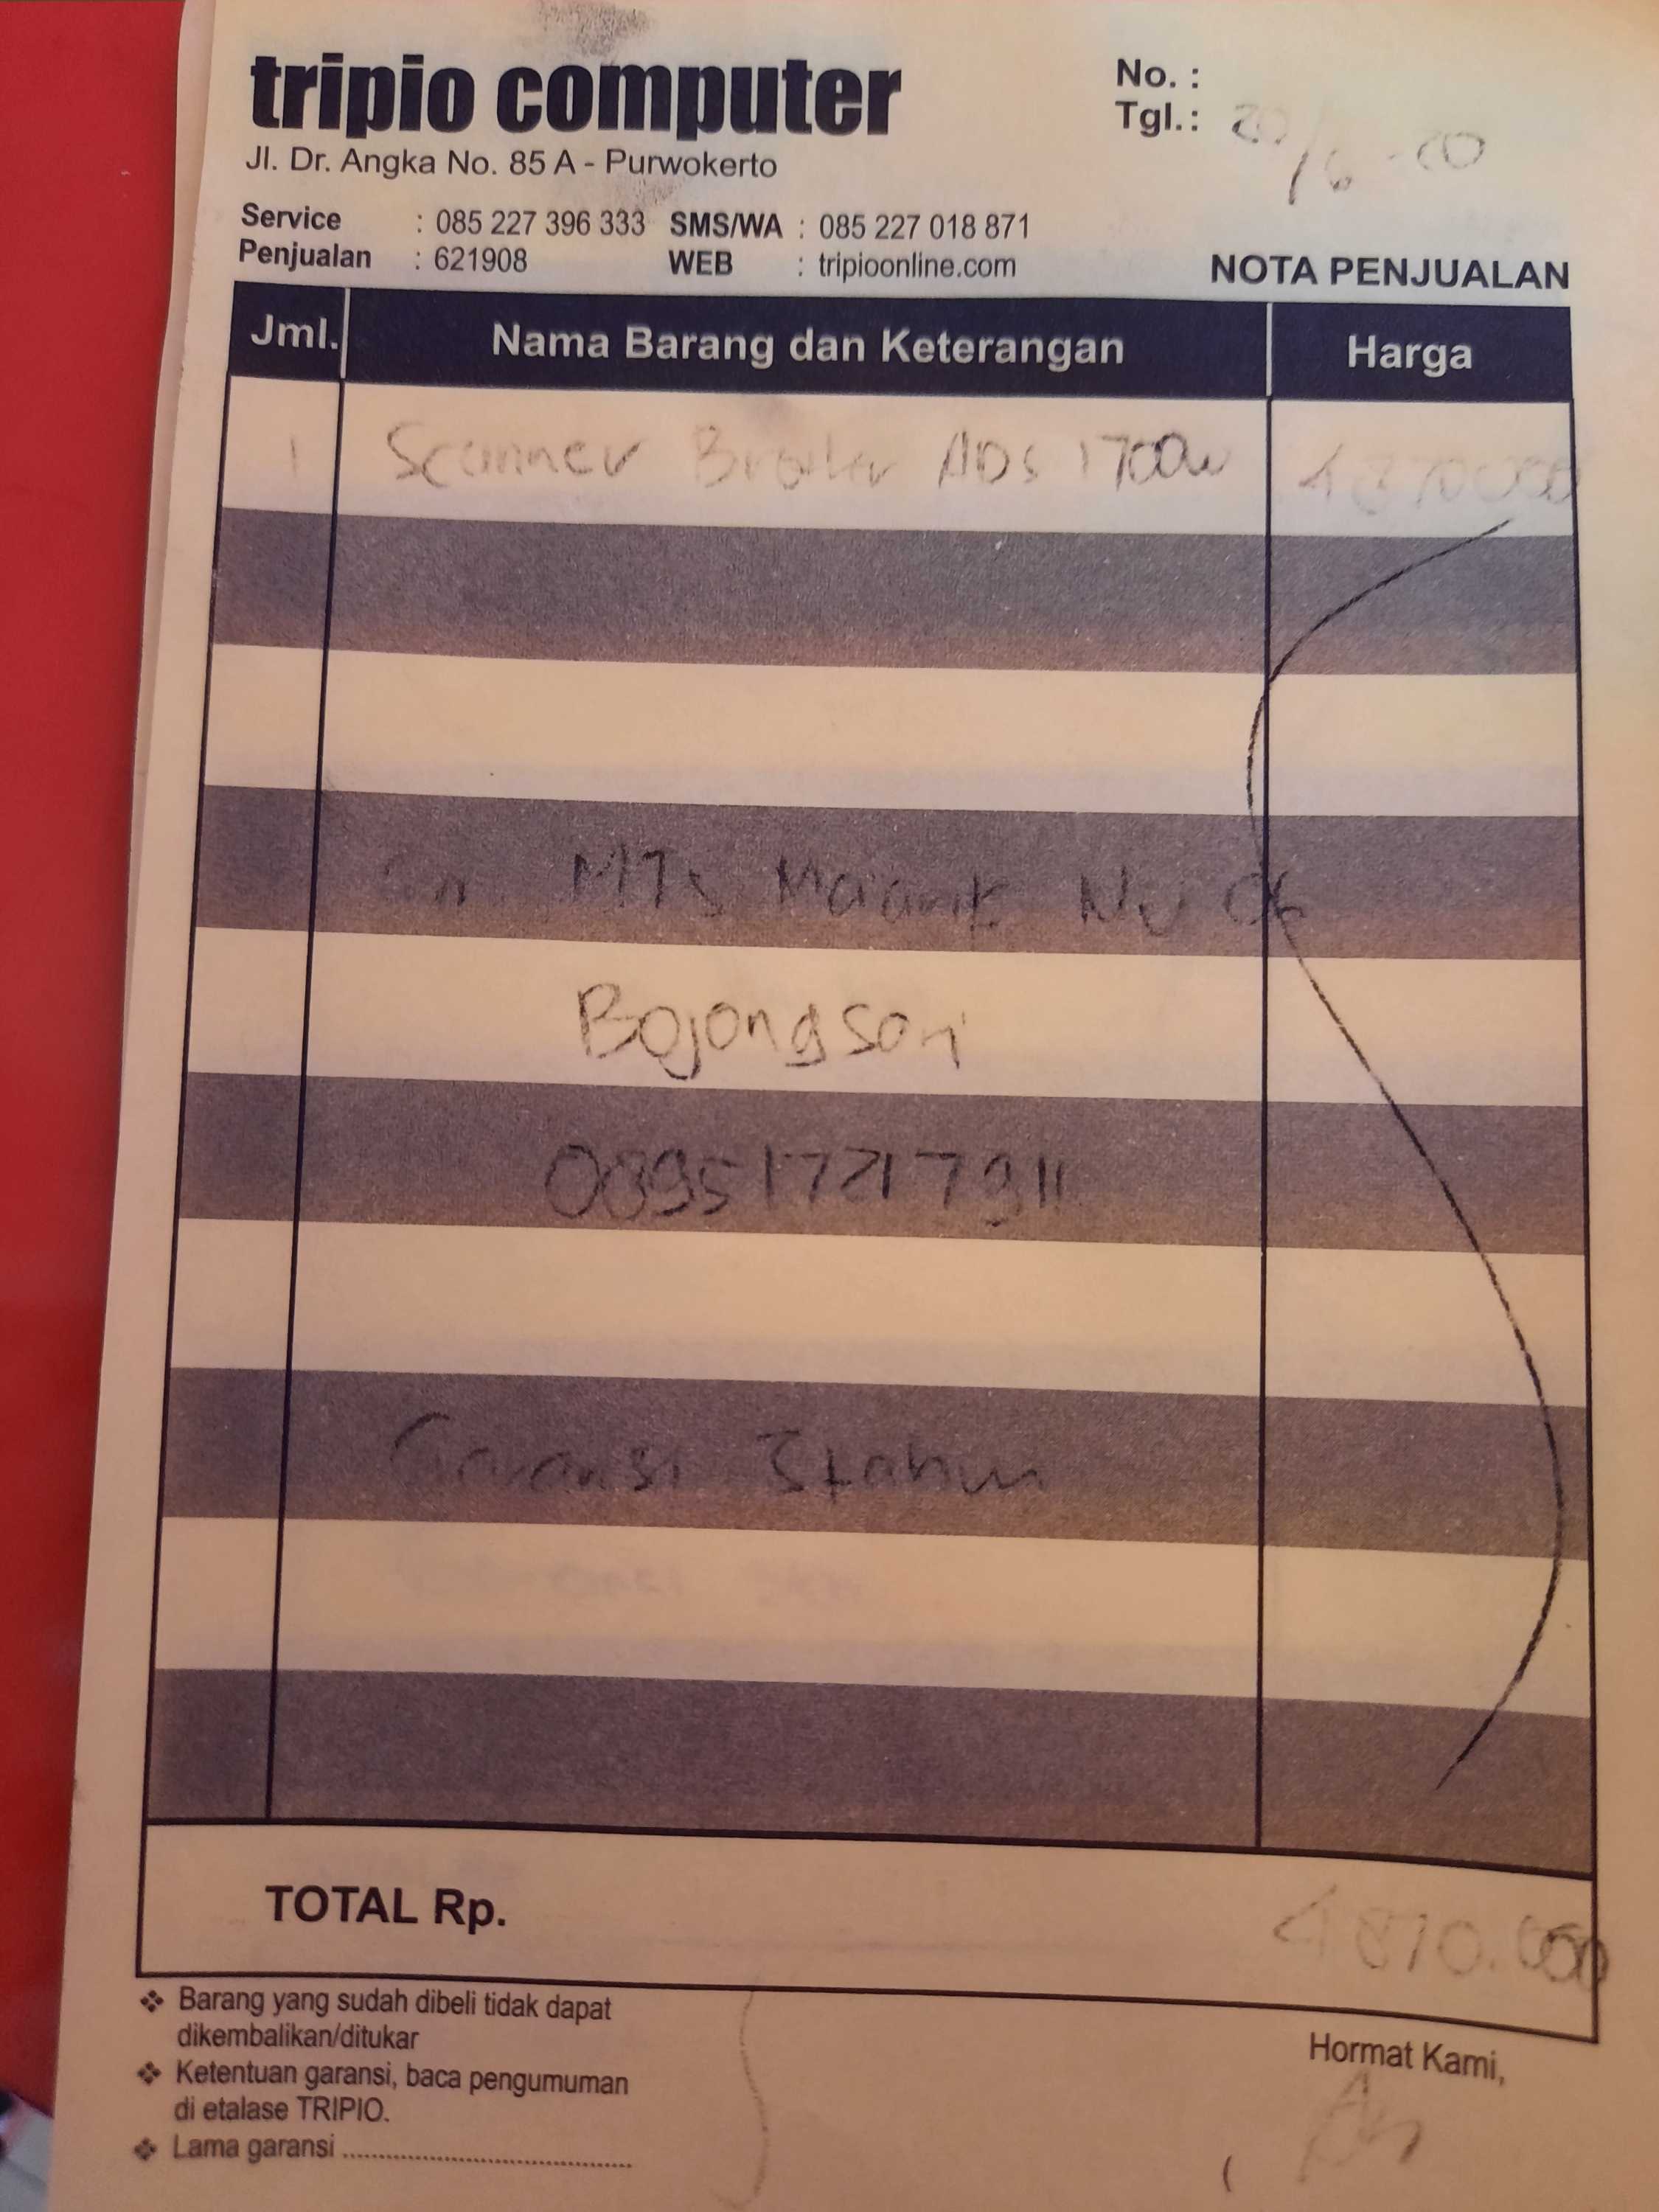 tripio computer
Jl. Dr. Angka No. 85 A - Purwokerto
Service : 085 227 396 333 SMS/WA : 085 227 018 871
Penjualan : 621908 WEB : tripioonline.com
No. :
Tgl.: 20/6-20
NOTA PENJUALAN
Jml. Nama Barang dan Keterangan Harga
1 Scanner Brother ADS 1700w 4870000
MTs Maarif NU 06
Bojongsari
089517217911
Garansi 3 tahun
TOTAL Rp. 4.870.000
❖ Barang yang sudah dibeli tidak dapat
dikembalikan/ditukar
❖ Ketentuan garansi, baca pengumuman
di etalase TRIPIO.
❖ Lama garansi ..........................................
Hormat Kami,